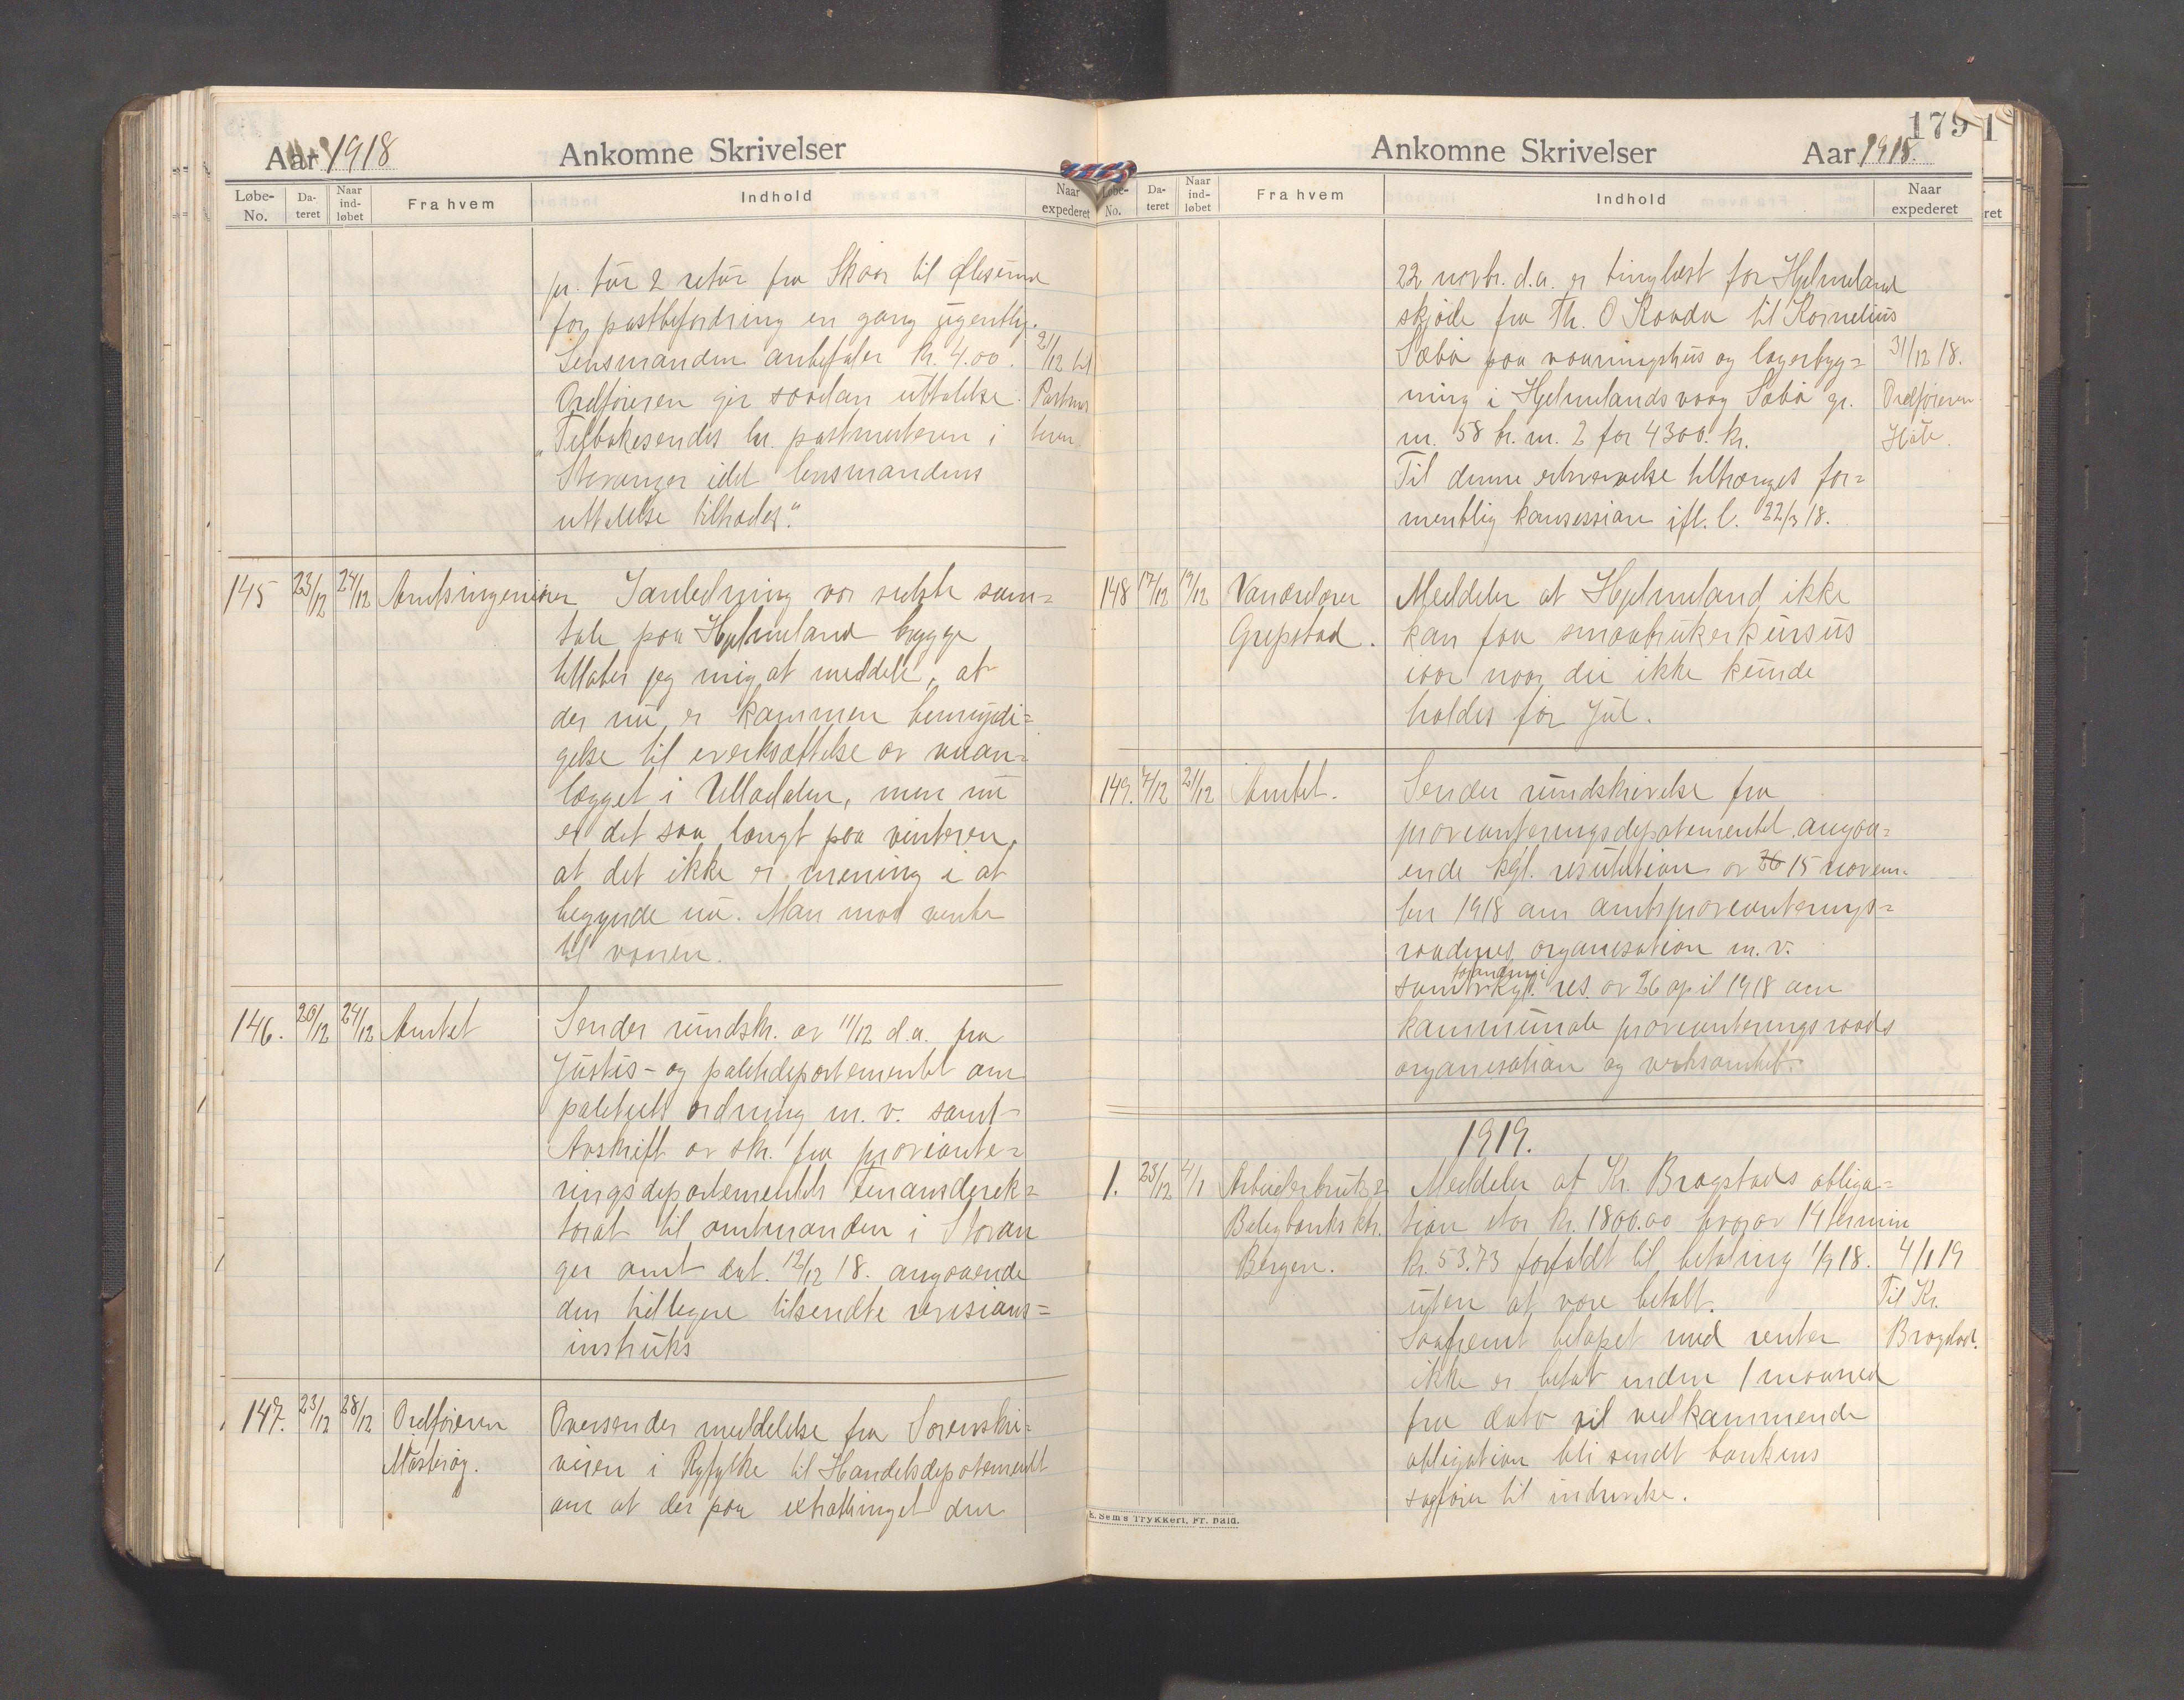 Aar 1918
Ankomne Skrivelser
Løbe-No.
Dateret
Naar indløbet
Fra hvem
Indhold
Naar expederet
pr. tur & retur fra Skaar til
for postbefordring en gang ugentlig.
Lensmanden anbefaler kr. 4.00.
Ordføreren gir saadan uttalelse:
„Tilbakesendes hr. postmesteren i
Stavanger idet lensmandens
uttalelse tiltrædes."
2/12 til
Postmes
teren
145 23/12 24/12 Amtsingeniøren
I anledning vor sidste sam=
tale paa Hjelmeland brygge
tillater jeg mig at meddele, at
der nu er kommen bemyndi=
gelse til iverksættelse av veian=
lægget i Ulladalen, men nu
er det saa langt paa vinteren,
at det ikke er mening i at
begynde nu. Man maa vente
til vaaren.
146. 20/12 24/12 Amtet
Sender rundskr. av 11/12 d.a. fra
Justis- og politidepartementet om
politiets ordning m.v. samt
Avskrift av skr. fra proviante=
ringsdepartementets Finansdirek=
torat til amtmanden i Stavan
ger amt dat. 12/12 18. angaaende
den tidligere tilsendte revisions=
instruks
147. 23/12 28/12 Ordføreren
Mosterøy.
Oversender meddelelse fra Sorenskri=
veren i Ryfylke til Handelsdepartementet
om at der paa extratinget den
179
Ankomne Skrivelser
Aar 1918.
Løbe-No.
Dateret
Naar indløbet
Fra hvem
Indhold
Naar expederet
22 novbr. d.a. er tinglæst for Hjelmeland
skjøde fra Th. O. Raada til Kornelius
Sæbø paa vaaningshus og lagerbyg=
ning i Hjelmelandsvaag Sæbø gr.
nr. 58 br. nr. 2 for 4300. kr.
Til denne erhvervelse tiltrænges for=
mentlig konsession ifl. l. 22/3 18.
31/12 18.
Ordføreren
148 17/12 19/12 Vandrelærer
Grepstad.
Meddeler at Hjelmeland ikke
kan faa smaabrukerkursus
iaar naar det ikke kunde
holdes før Jul.
149. 7/12 21/12 Amtet.
Sender rundskrivelse fra
provianteringsdepartementet angaa=
ende kgl. resulution av 26 15 novem=
ber 1918 om amtsprovianterings=
raadenes organisation m.v.
samt
kgl. res. av 26 april 1918 om
kommunale provianteringsraads
organisation og virksomhet.
1919.
1. 23/12 4/1 Arbeiderbruk &
Boligbanks ktr.
Bergen.
Meddeler at Kr. Bragstads obliga=
tion stor kr. 1800.00 hvorav 14 termin
kr. 53.73 forfaldt til betaling 1/9 18.
uten at være betalt.
Saafremt beløpet med renter
ikke er betalt inden 1 maaned
fra dato vil vedkommende
obligation bli sendt bankens
sagfører til inddrivelse.
4/1 19
Til Kr.
Bragstad.
E. Sem's Trykkeri, Fr.hald.